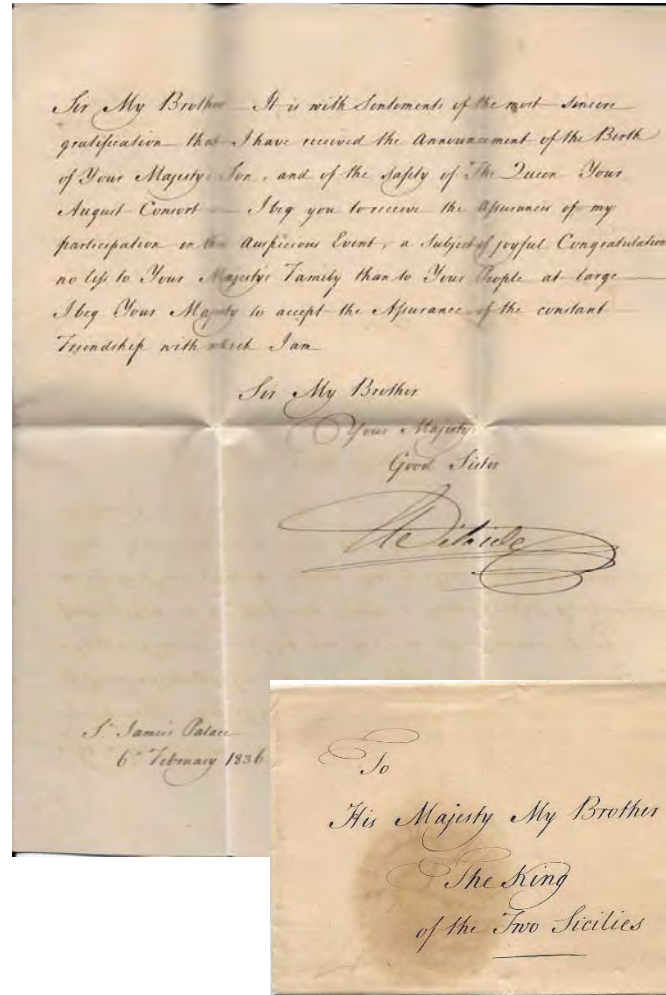 Sir My Brother It is with Sentiments of the most sincere
gratification that I have received the Announcement of the Birth
of Your Majesty's Son, and of the safety of The Queen Your
August Consort I beg you to receive the Assurances of my
participation in this Auspicious Event, a Subject of joyful Congratulation
no less to Your Majesty's Family than to Your People at large
I beg Your Majesty to accept the Assurance of the constant
Friendship with which I am
Sir My Brother
Your Majesty's
Good Sister
St James's Palace
6th February 1836
To
His Majesty My Brother
The King
of the Two Sicilies